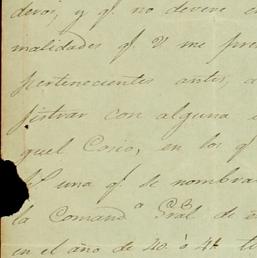 deros, y qᵉ no deveve en
malidades qᵉ V me pres
pertenecientes antes, a
pistrar con alguna e
quel Cosio, en los qᵉ
una qᵉ se nombra
la Comandᵃ Gral de e
en el año de 40 ó 46 te